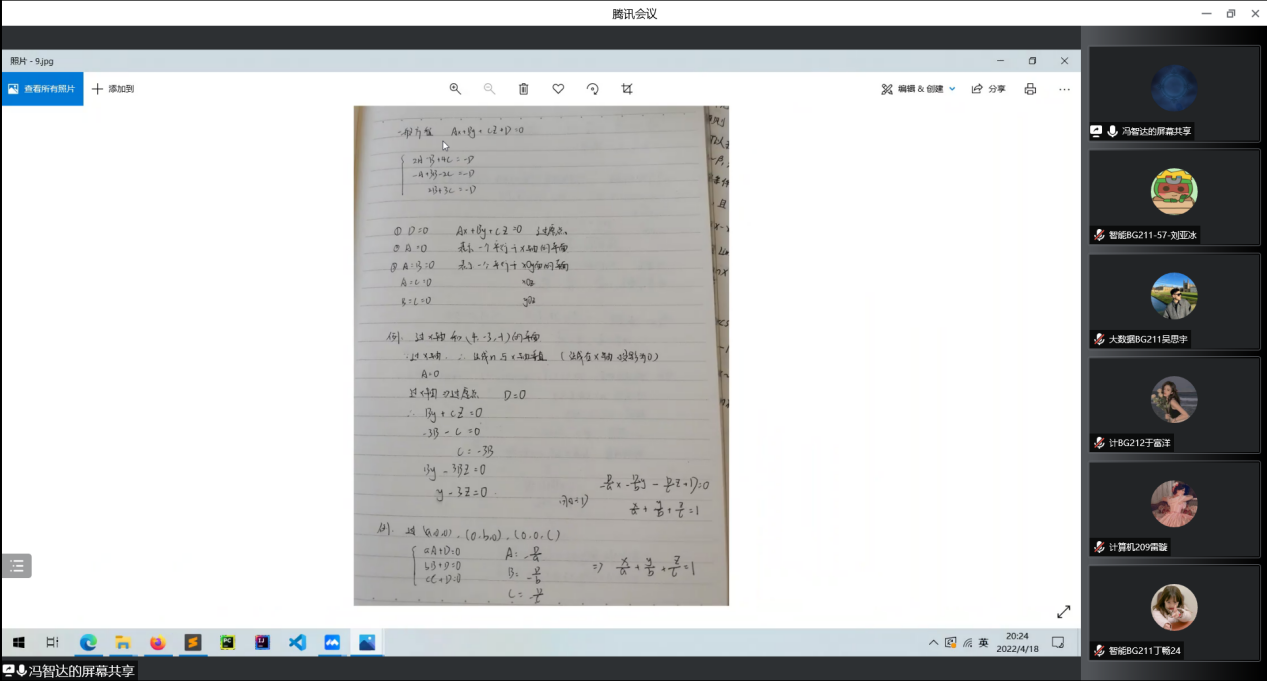 腾讯会议
照片 - 9.jpg
查看所有照片
添加到
编辑 & 创建
分享
一般方程 Ax+By+CZ+D=0
2A-B+4C=-D
-A+3B-2C=-D
2B+3C=-D
① D=0 Ax+By+CZ=0 过原点
② A=0 表示一个平行于x轴的平面
③ A=B=0 表示一个平行于xOy面的平面
A=C=0 xOz
B=C=0 yOz
例. 过x轴和(4,-3,-1)的平面
∵过x轴 ∴法线n与x轴垂直 (法线在x轴投影为0)
A=0
过x轴⇒过原点 D=0
∴ By+CZ=0
-3B-C=0
C=-3B
By-3BZ=0
y-3Z=0
-D/a x - D/b y - D/c Z+D=0
x/a + y/b + z/c = 1
例. 过(a,0,0),(0,b,0),(0,0,C)
aA+D=0 A=-D/a
bB+D=0 B=-D/b
cC+D=0 C=-D/c
⇒ x/a + y/b + z/c = 1
英
20:24
2022/4/18
冯智达的屏幕共享
冯智达的屏幕共享
智能BG211-57-刘亚冰
大数据BG211吴思宇
计BG212于富洋
计算机209雷璇
智能BG211丁畅24